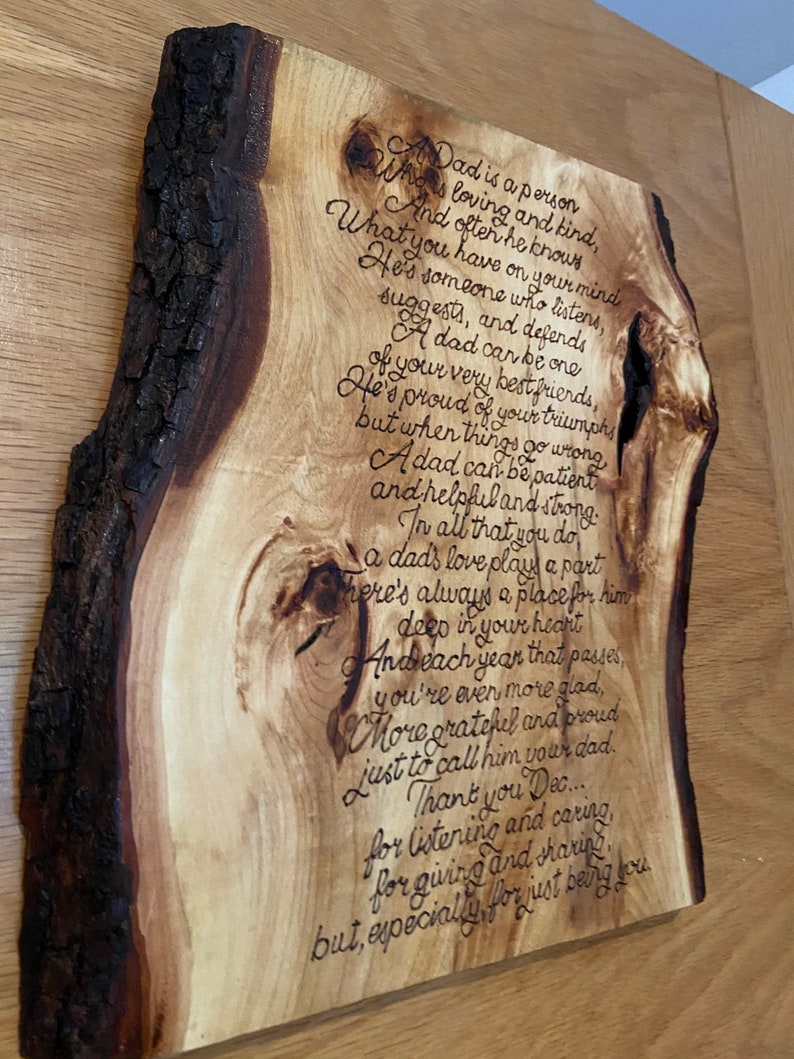 A Dad is a person
Who is loving and kind,
And often he knows
What you have on your mind
He's someone who listens,
suggests, and defends
A dad can be one
of your very best friends,
He's proud of your triumphs
but when things go wrong
A dad can be patient
and helpful and strong.
In all that you do,
a dad's love plays a part
There's always a place for him
deep in your heart
And each year that passes,
you're even more glad,
More grateful and proud
just to call him your dad.
Thank you Dec...
for listening and caring,
for giving and sharing,
but, especially, for just being you.